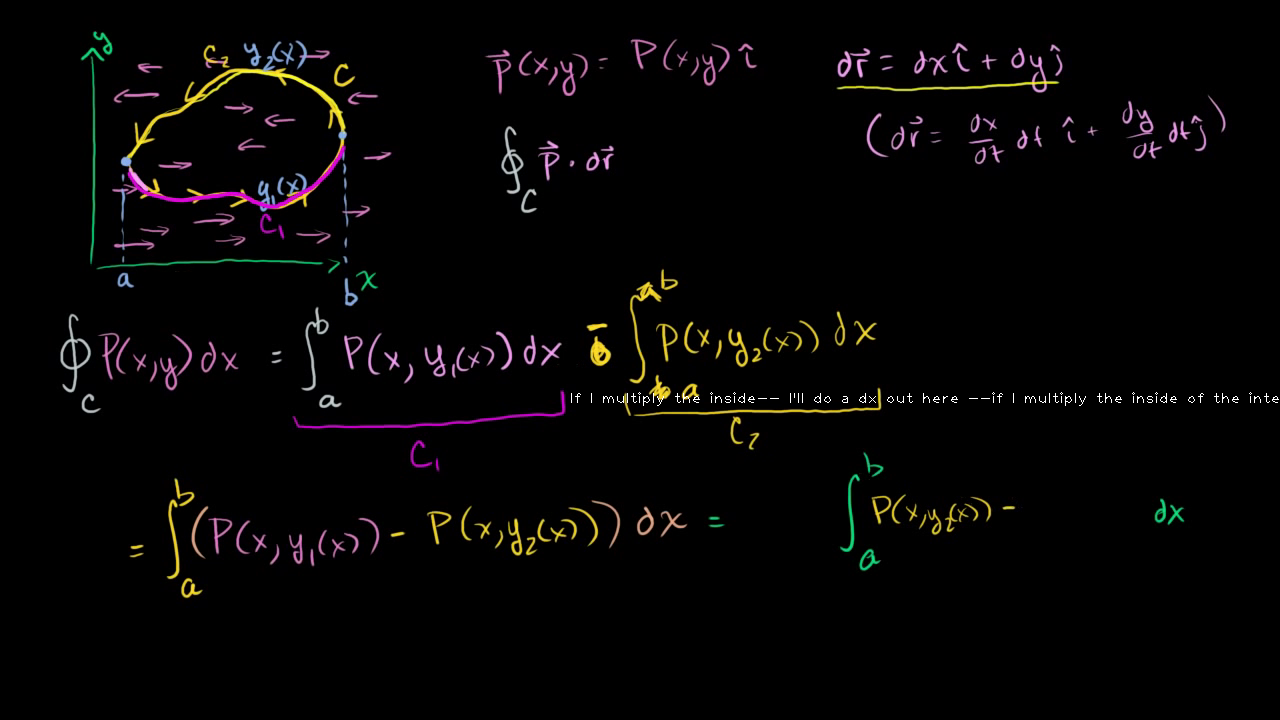 y
C₂ y₂(x)
C
y₁(x)
C₁
a
b
x
p⃗(x,y) = P(x,y) î
∮_C p⃗ · dr⃗
dr⃗ = dx î + dy ĵ
(dr⃗ = dx/dt dt î + dy/dt dt ĵ)
∮_C P(x,y) dx = ∫_a^b P(x, y₁(x)) dx - ∫_a^b P(x, y₂(x)) dx
If I multiply the inside-- I'll do a dx out here --if I multiply the inside of the inte
C₁
C₂
= ∫_a^b (P(x, y₁(x)) - P(x, y₂(x))) dx = ∫_a^b P(x, y₂(x)) - dx